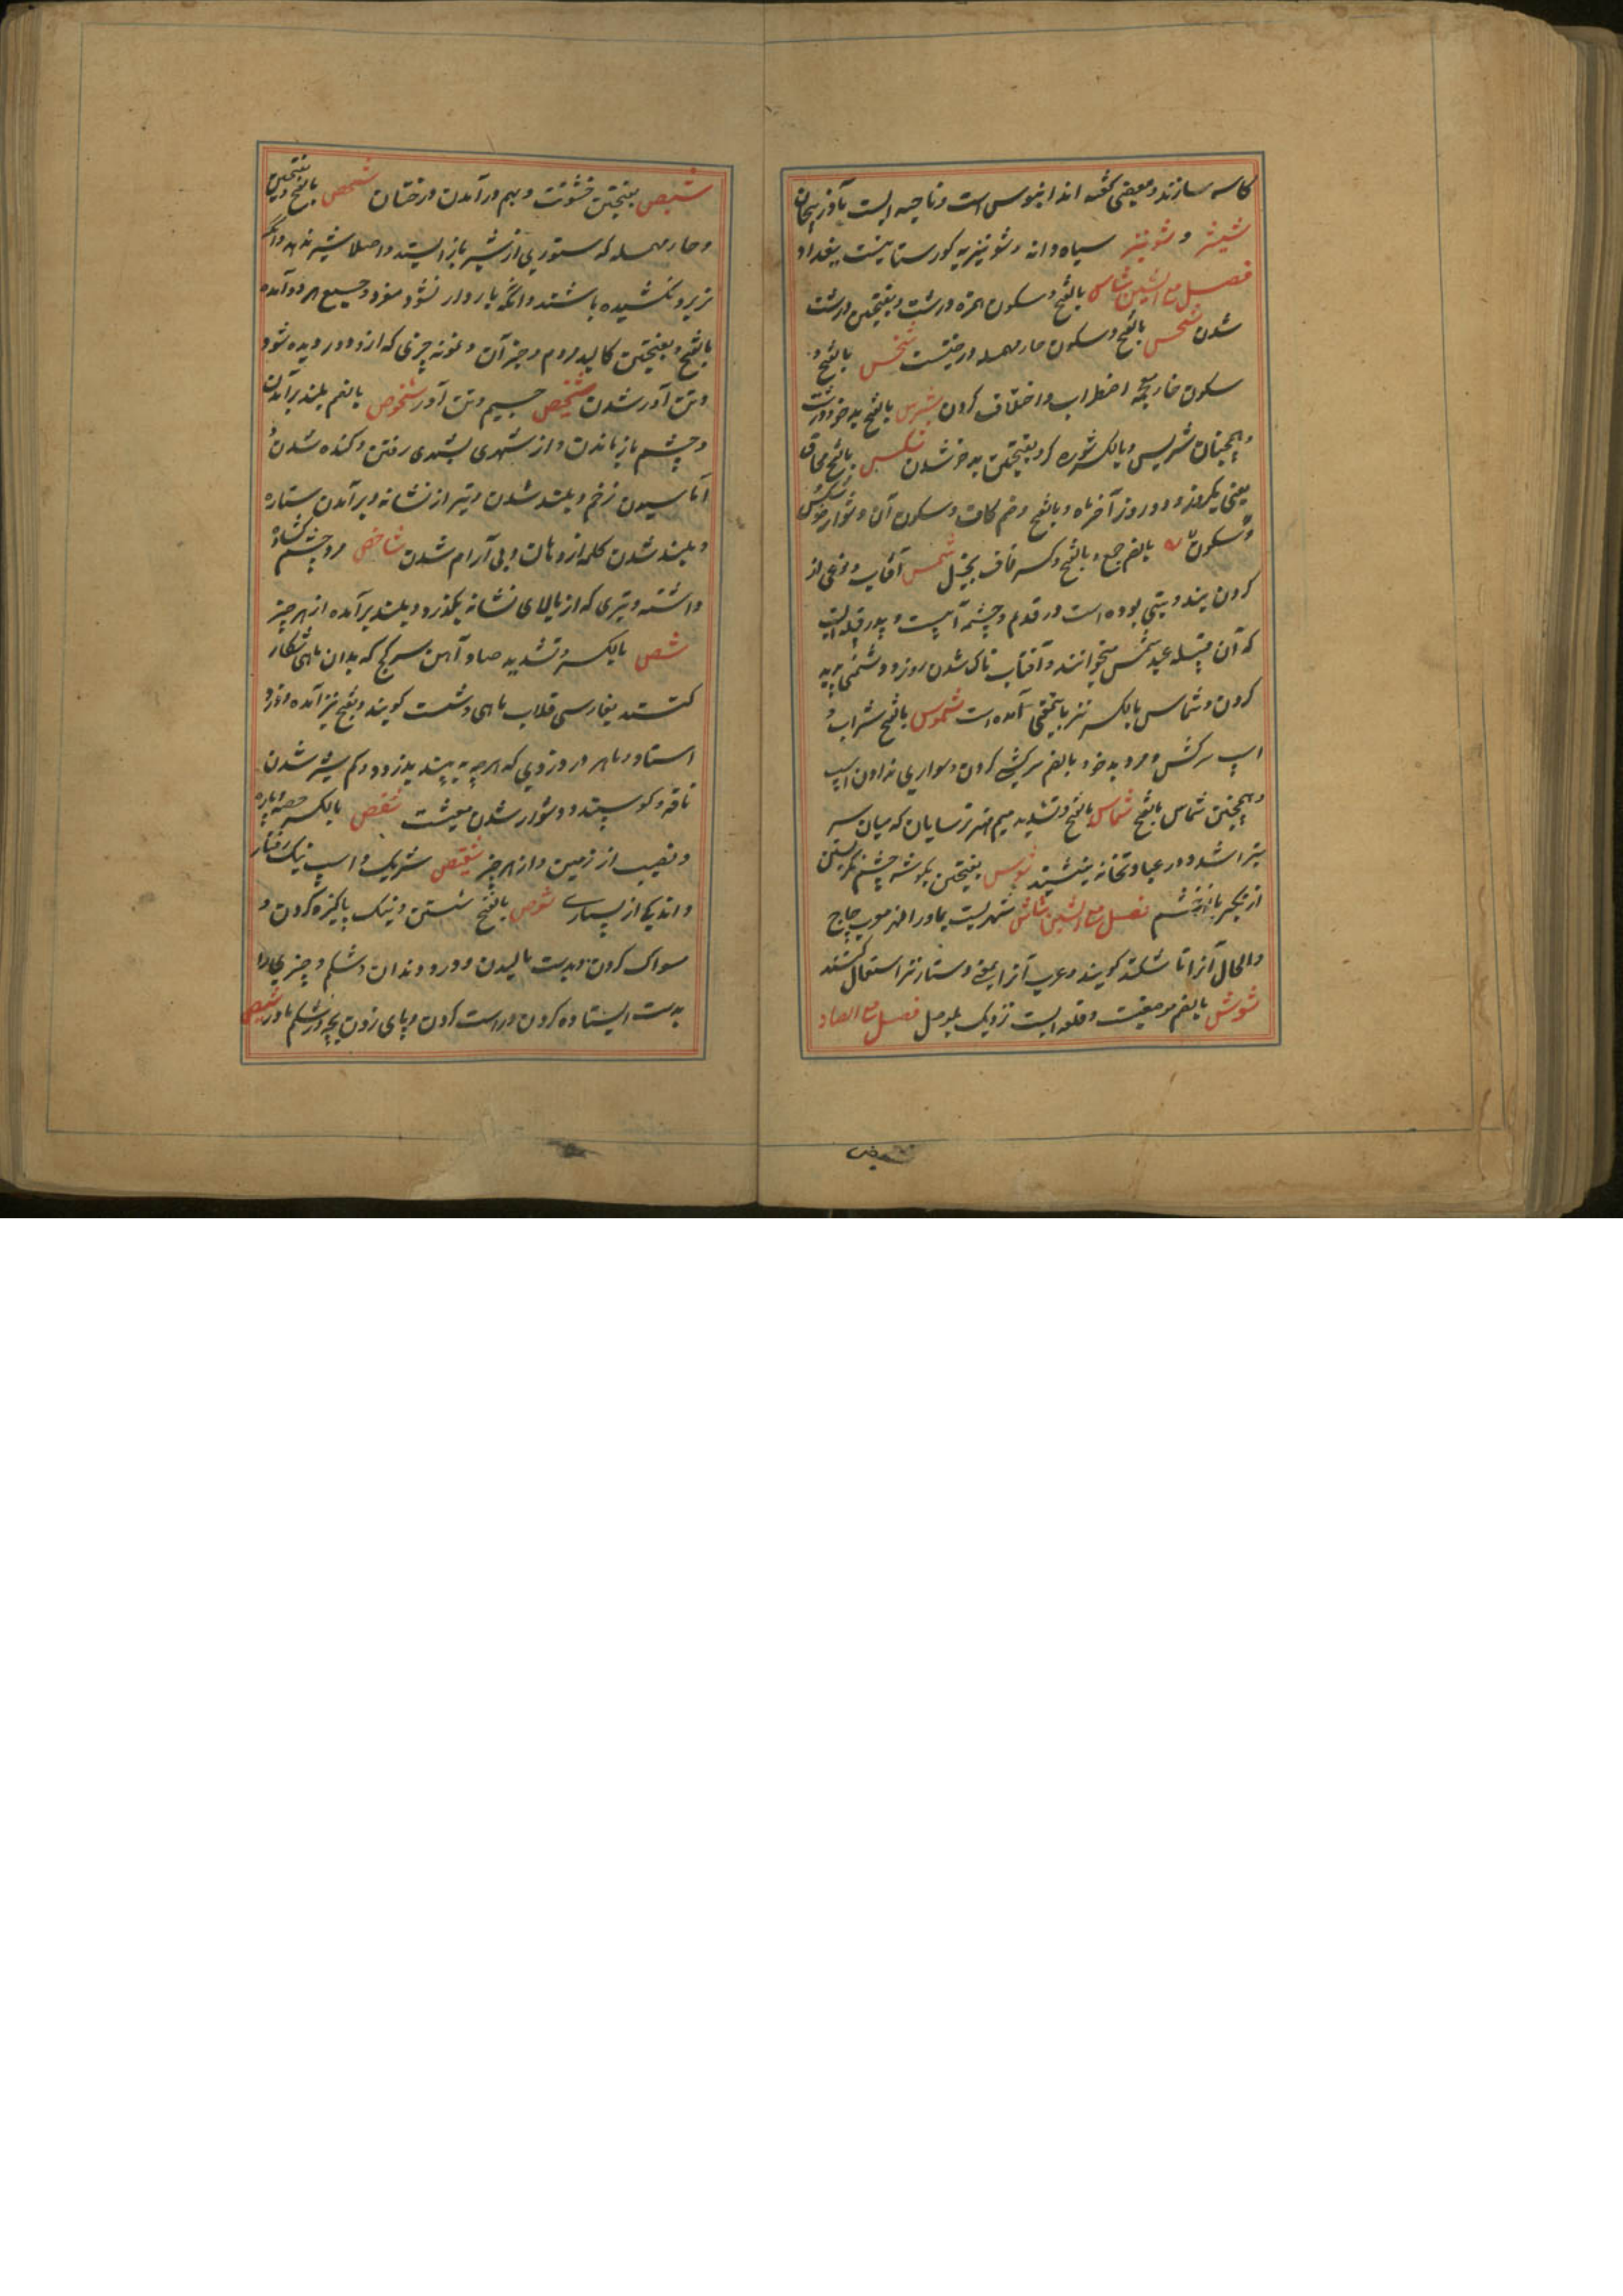 کاسه سازند و بعضی گفته اند ابنوس است و ناحیه ایست بآذربیجان
شینیز و شونیز سیاه دانه و شونیزیه کورستانیست ببغداد
فصل مع السین شاس بالفتح و سکون همزه درشت و بفتحتین درشت
شدن شحس بالفتح و سکون حار مهمله درختیست شخس بالفتح و
سکون خار معجمه اضطراب و اختلاف کردن شرس بالفتح بدخو و درشت
و همچنان شریس و بالکسر شوره کرد بفتحتین بدخو شدن شکس بالفتح محاق
یعنی یکروز و دو روز آخر ماه و بالفتح و ضم کاف و سکون آن دشوار خو
و سکون بالضم جمع و بالفتح و کسر قاف بخیل شمس آفتاب و نوعی از
کردن بند و بتی بوده است در قدیم و چشمه آبیست و پدر قبیله ایست
که آن قبیله عبد شمس میخوانند و آفتاب ناک شدن روز و دشمنی پدید
کردن و شماس بالکسر نیز باین معنی آمده است شموس بالفتح شراب و
اسپ سرکش و مرد بدخو و بالضم سرکشی کردن و سواری ندادن اسپ
و همچنین شماس بالفتح شماس بالفتح و تشدید میم مهتر ترسایان که میان سر
بتراشد و در عبادتخانه بنشیند شوس بفتحتین بگوشه چشم نگریستن
از تکبر یا از خشم فصل مع الشین شاش شهریست بماوراءالنهر معرب چاچ
و الحال آنرا تاشکند گویند و عرب آنرا بمعنی دستار نیز استعمال کنند
شوش بالضم موضعیست و قلعه ایست نزدیک بموصل فصل مع الصاد
شبص بفتحتین خشونت و بهم درآمدن درختان شحص بالفتح و بفتحتین
و حار مهمله که ستوری از شیر باز ایستد و اصلا شیر ندهد و آنکه
نر برو نکشیده باشند و آنکه باردار نشود مفرد و جمیع هر دو آمده
بالفتح و بفتحتین کالبد مردم و جز آن و نمونه چیزی که از دور دیده شود
و تن آور شدن شخیص جسیم و تن آور شخوص بالضم بلند برآمدن
و چشم باز ماندن و از شهری بشهری رفتن و کنده شدن و
آماسیدن زخم و بلند شدن و تیر از نشانه و برآمدن ستاره
و بلند شدن کلمه از دهان و بی آرام شدن شاخص مرد چشم گشاده
داشته و تیری که از بالای نشانه بگذرد و بلند برآمده از هر چیز
شص بالکسر و تشدید صاد آهن سر کج که بدان ماهی شکار
کنند بفارسی قلاب ماهی و شست گویند و بفتح نیز آمده و دزد
استاد و ماهر در دزدی که هر چه بیند بدزدد و کم شیر شدن
ناقه و گوسپند و دشوار شدن معیشت شقص بالکسر حصه و پاره
و نصیب از زمین و از هر چیز شقیص شریک و اسپ نیک رفتار
و اندیکا از بسیاری شوص بالفتح شستن و نیک پاکیزه کردن و
مسواک کردن و بدست مالیدن و درد دندان و شکم و چیزی را
بدست ایستاده کردن و راست کردن و پای زدن بچه در شکم مادر شیص
شیص